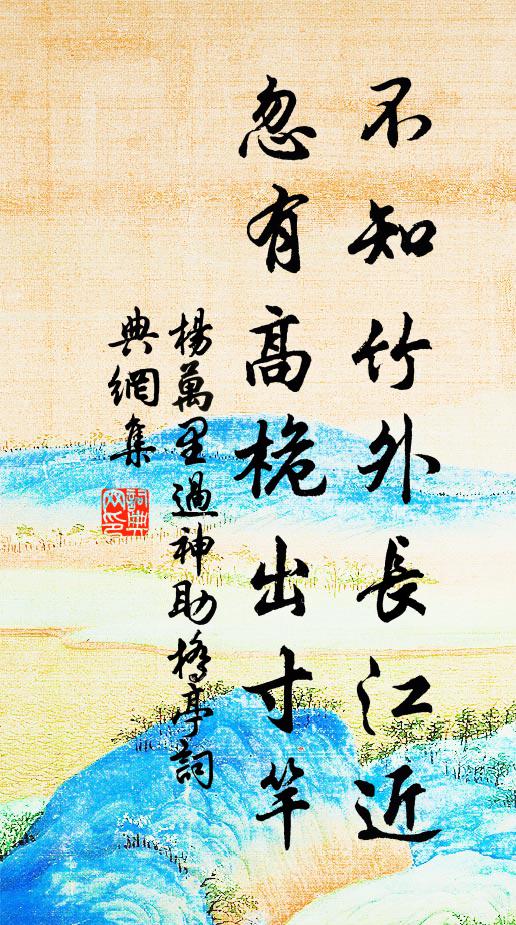 不知竹外長江近
忽有高桅出寸竿
楊萬里過神助橋亭詞
典網集
詞典网印